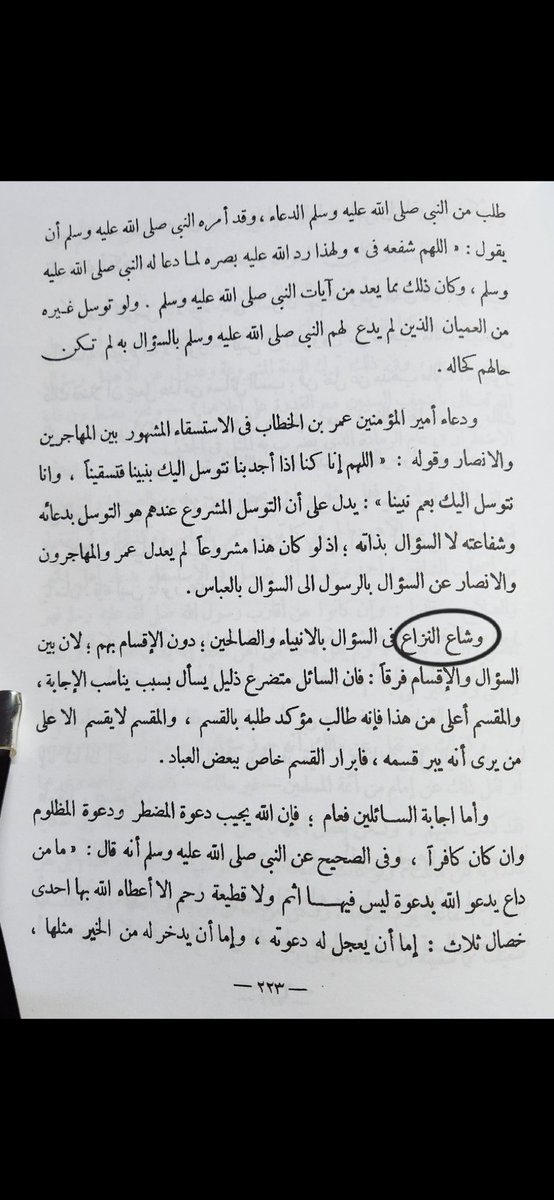 طلب من النبى صلى الله عليه وسلم الدعاء ، وقد أمره النبى صلى الله عليه وسلم أن
يقول : « اللهم شفعه فى » ولهذا رد الله عليه بصره لما دعا له النبى صلى الله عليه
وسلم ، وكان ذلك مما يعد من آيات النبى صلى الله عليه وسلم . ولو توسل غيره
من العميان الذين لم يدع لهم النبى صلى الله عليه وسلم بالسؤال به لم تكن
حالهم كحاله .
ودعاء أمير المؤمنين عمر بن الخطاب فى الاستسقاء المشهور بين المهاجرين
والانصار وقوله : « اللهم إنا كنا اذا أجدبنا نتوسل اليك بنبينا فتسقينا ، وانا
نتوسل اليك بعم نبينا » : يدل على أن التوسل المشروع عندهم هو التوسل بدعائه
وشفاعته لا السؤال بذاته ؛ اذ لو كان هذا مشروعاً لم يعدل عمر والمهاجرون
والانصار عن السؤال بالرسول الى السؤال بالعباس .
وشاع النزاع فى السؤال بالانبياء والصالحين ؛ دون الإقسام بهم ؛ لان بين
السؤال والإقسام فرقاً : فان السائل متضرع ذليل يسأل بسبب يناسب الإجابة ،
والمقسم أعلى من هذا فإنه طالب مؤكد طلبه بالقسم ، والمقسم لايقسم الا على
من يرى أنه يبر قسمه ، فابرار القسم خاص ببعض العباد .
وأما اجابة السائلين فعام ؛ فإن الله يجيب دعوة المضطر ودعوة المظلوم
وان كان كافراً ، وفى الصحيح عن النبى صلى الله عليه وسلم أنه قال : « ما من
داع يدعو الله بدعوة ليس فيها اثم ولا قطيعة رحم الا أعطاه الله بها احدى
خصال ثلاث : إما أن يعجل له دعوته ، وإما أن يدخر له من الخير مثلها ،
— ٢٢٣ —